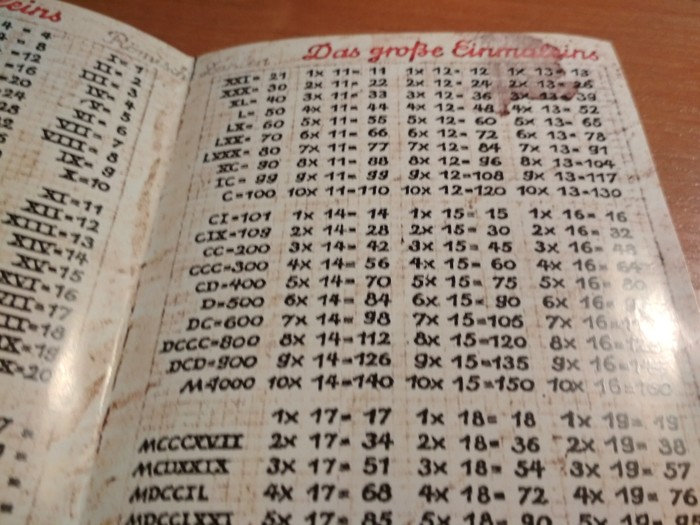 eins
= 4
= 8
=12
=16
=20
=24
28
I = 1
II = 2
III = 3
IV = 4
V = 5
VI = 6
VII = 7
VIII = 8
IX = 9
X=10
XI=11
XII=12
XIII=13
XIV=14
XV=15
XVI=16
VII=17
III=18
IX=19
X=20
Römisch
Das große Einmaleins
XXI= 21 1x 11= 11 1x 12= 12 1x 13= 13
XXX= 30 2x 11= 22 2x 12= 24 2x 13= 26
XL= 40 3x 11= 33 3x 12= 36 3x 13= 39
L= 50 4x 11= 44 4x 12= 48 4x 13= 52
LX= 60 5x 11= 55 5x 12= 60 5x 13= 65
LXX= 70 6x 11= 66 6x 12= 72 6x 13= 78
LXXX= 80 7x 11= 77 7x 12= 84 7x 13= 91
XC= 90 8x 11= 88 8x 12= 96 8x 13=104
IC= 99 9x 11= 99 9x 12=108 9x 13=117
C=100 10x 11=110 10x 12=120 10x 13=130
CI=101 1x 14= 14 1x 15= 15 1x 16= 16
CIX=109 2x 14= 28 2x 15= 30 2x 16= 32
CC=200 3x 14= 42 3x 15= 45 3x 16= 48
CCC=300 4x 14= 56 4x 15= 60 4x 16= 64
CD=400 5x 14= 70 5x 15= 75 5x 16= 80
D=500 6x 14= 84 6x 15= 90 6x 16=
DC=600 7x 14= 98 7x 15=105 7x 16=
DCCC=800 8x 14=112 8x 15=120 8x 16=
DCD=900 9x 14=126 9x 15=135 9x 16=
M=1000 10x 14=140 10x 15=150 10x 16=160
1x 17= 17 1x 18= 18 1x 19= 19
MCCCXVII 2x 17= 34 2x 18= 36 2x 19= 38
3x 17= 51 3x 18= 54 3x 19= 57
MDCCIL 4x 17= 68 4x 18= 72 4x 19= 76
MDCCLXXI 5x 17= 85 5x 18= 90 5x 19=